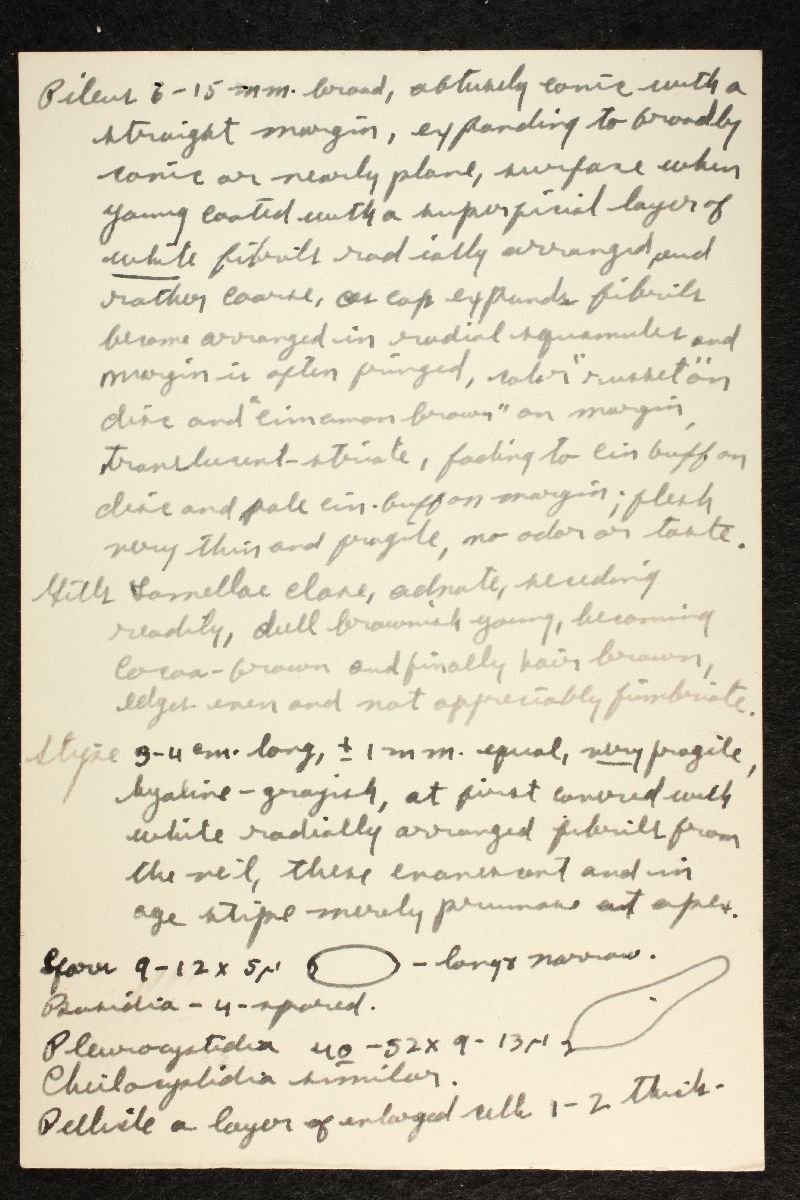 Pileus 6-15 mm. broad, obtusely conic with a
straight margin, expanding to broadly
conic or nearly plane, surface when
young coated with a superficial layer of
white fibrils radially arranged, and
rather coarse, as cap expands fibrils
become arranged in radial squamules and
margin is often fringed, color "russet" on
disc and "cinnamon brown" on margin,
translucent-striate, fading to cin buff on
disc and pale cin. buff on margin; flesh
very thin and fragile, no odor or taste.
Gills Lamellae close, adnate, seceding
readily, dull brownish young, becoming
cocoa-brown and finally hair brown,
edges even and not appreciably fimbriate.
Stipe 3-4 cm. long, ± 1 mm. equal, very fragile,
hyaline-grayish, at first covered with
white radially arranged fibrils from
the veil, these evanescent and in
age stipe merely pruinose at apex.
Spores 9-12 x 5µ - long & narrow.
Basidia - 4-spored.
Pleurocystidia 40-52 x 9-13µ
Cheilocystidia similar.
Pellicle a layer of enlarged cells 1-2 thick.